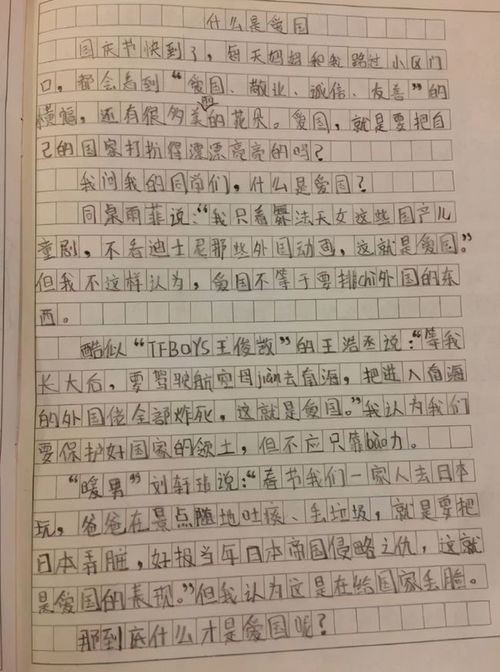 什么是爱国
国庆节快到了，每天妈妈和我路过小区门
口，都会看到“爱国、敬业、诚信、友善”的
横幅，还有很多美丽的花朵。爱国，就是要把自
己的国家打扮得漂漂亮亮的吗？
我问我的同学们，什么是爱国？
同桌雨菲说：“我只看舞法天女这些国产儿
童剧，不看迪士尼那些外国动画，这就是爱国。”
但我不这样认为，爱国不等于要排chì外国的东
西。
酷似“TFBOYS王俊凯”的王浩丞说：“等我
长大后，要驾驶航空母jiàn去南海，把进入南海
的外国佬全部炸死，这就是爱国。”我认为我们
要保护好国家的领土，但不应只靠bào力。
“暖男”刘轩说：“春节我们一家人去日本
玩，爸爸在景点随地吐痰、丢垃圾，就是要把
日本弄脏，好报当年日本帝国侵略之仇，这就
是爱国的表现。”但我认为这是在给国家丢脸。
那到底什么才是爱国呢？